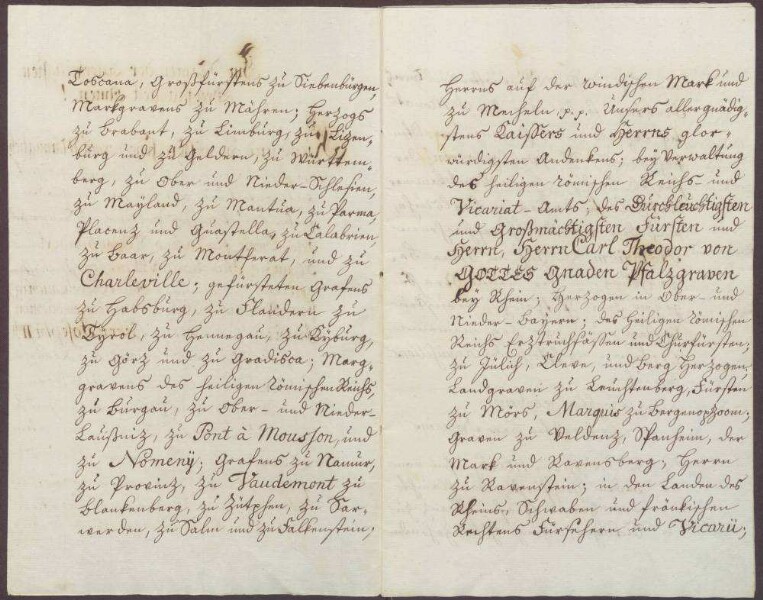 Toscana, Großfürstens zu Siebenbürgen,
Markgravens zu Mähren; Herzogs
zu Brabant, zu Limburg, zu Lizen-
burg und zu Geldern, zu Württem-
berg, zu Ober und Nieder-Schlesien,
zu Mayland, zu Mantua, zu Parma,
Placenz und Guastella, zu Calabrien,
zu Baar, zu Montferat, und zu
Charleville; gefürsteten Grafens
zu Habsburg, zu Flandern zu
Tyrol, zu Hennegau, zu Kyburg,
zu Görz und zu Gradisca; Marg-
gravens des heiligen Römischen Reichs,
zu Burgau, zu Ober- und Nieder-
Laußniz, zu Pont à Mousson, und
zu Nomenÿ; Grafens zu Namur,
zu Provinz, zu Vaudemont zu
Blankenberg, zu Zütphen, zu Sar-
werden, zu Salm und zu Falkenstein;
Herrns auf der windischen Mark und
zu Mecheln p. p. Unsers allergnädig-
stens Kaissers und Herrns glor-
würdigsten Andenkens; bey Verwaltung
des heiligen Römischen Reichs- und
Vicariat-Amts, des Durchleuchtigsten
und Großmächtigsten Fürsten und
Herrn, Herrn Carl Theodor von
GOTTES Gnaden Pfalzgraven
bey Rhein; Herzogen in Ober- und
Nieder-Bayern; des heiligen Römischen
Reichs Erztruchsässen und Churfürsten;
zu Jülich, Cleve, und Berg Herzogen,
Landgraven zu Leuchtenberg, Fürsten
zu Mörs, Marquis zu Bergenopzoom;
Graven zu Veldenz, Spanheim, der
Mark und Ravensberg; Herrn
zu Ravenstein; in den Landen des
Rheins, Schwaben und fränkischen
Rechtens Fürsehern und Vicarii;